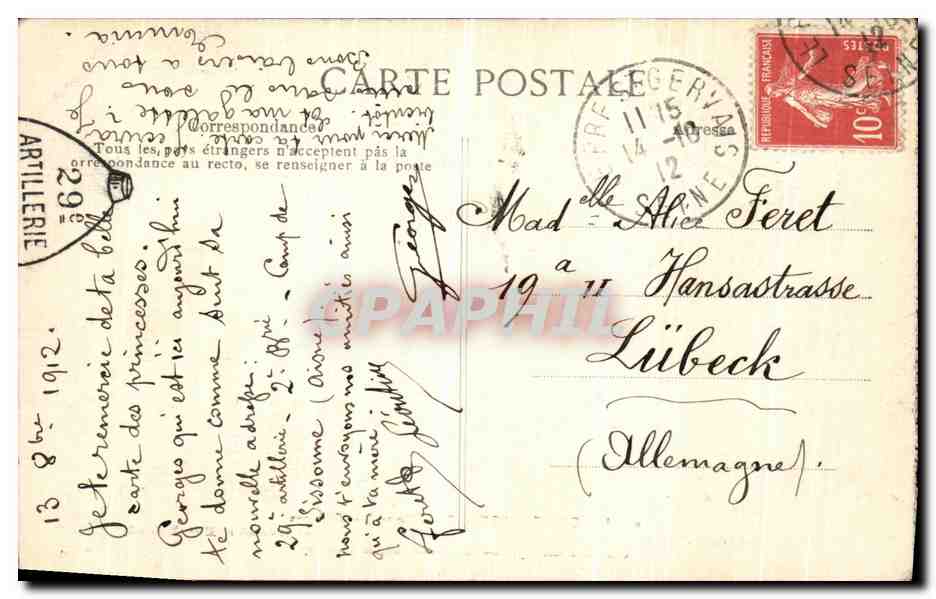 CARTE POSTALE
Correspondance
Tous les pays étrangers n'acceptent pas la
correspondance au recto, se renseigner à la poste
Adresse
LE PRE-ST-GERVAIS
11 15
14 -10
12
SEINE
REPUBLIQUE FRANÇAISE
POSTES
10c
14
12
SEINE
ARTILLERIE
29e
Madelle Alice Feret
19 a II Hansastrasse
Lübeck
(Allemagne).
13 8bre 1912.
Je te remercie de ta belle
carte des princesses.
Georges qui est ici aujourd'hui
te donne comme suit sa
nouvelle adresse:
29e artillerie - 2e Bie - Camp de
Sissonne (Aisne)
nous t'envoyons nos amitiés ainsi
qu'à ta mère.
Feret
Georges
Merci pour ta carte
bientôt et ma galette? Je
dans les
Bons baisers à tous
CPAPHIL